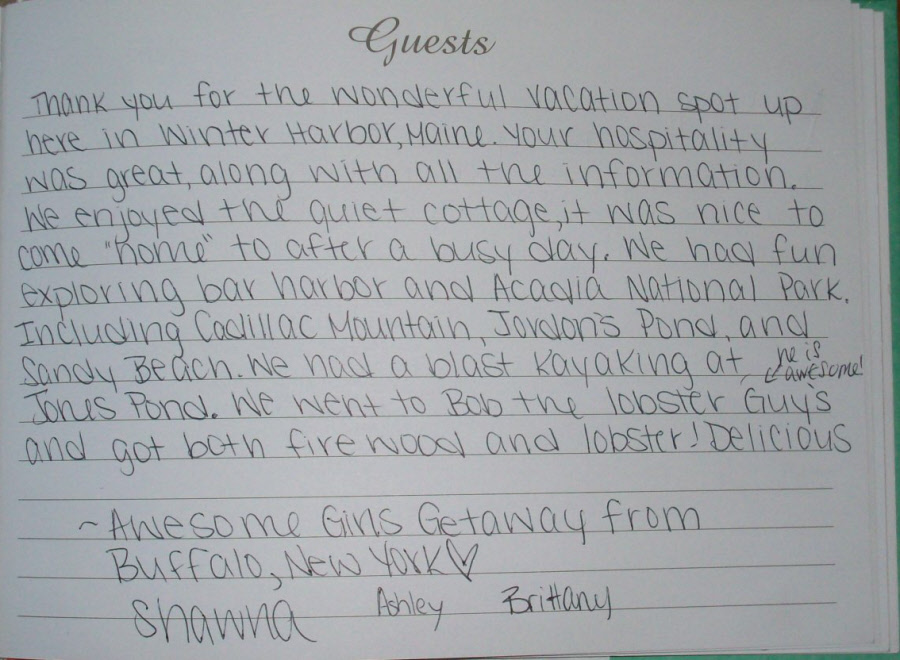 Guests
Thank you for the wonderful vacation spot up
here in Winter Harbor, Maine. Your hospitality
was great, along with all the information.
We enjoyed the quiet cottage, it was nice to
come "home" to after a busy day. We had fun
exploring bar harbor and Acadia National Park.
Including Cadillac Mountain, Jordon's Pond, and
Sandy Beach. We had a blast kayaking at
he is
awesome!
Jones Pond. We went to Bob the lobster Guy's
and got both fire wood and lobster! Delicious
~Awesome Girls Getaway from
Buffalo, New York♡
Shawna Ashley Brittany